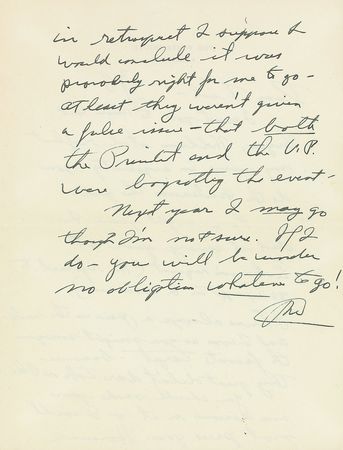 in retrospect I suppose I
would conclude it was
probably right for me to go -
at least they weren't given
a false issue - that both
the President and the V.P.
were boycotting the event -
Next year I may go
though I'm not sure. If I
do - you will be under
no obligation whatever to go!